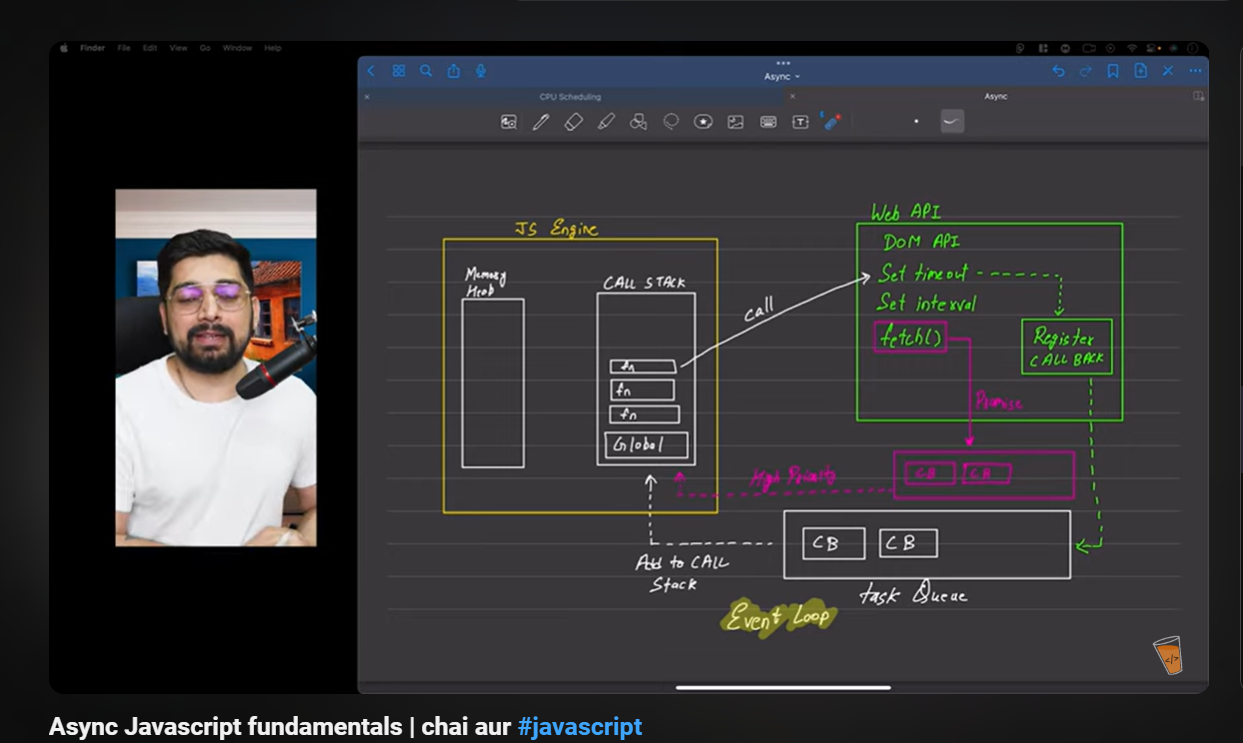 Finder File Edit View Go Window Help
Async
CPU Scheduling
Async
JS Engine
Memory
Heap
CALL STACK
fn
fn
fn
Global
call
Web API
DOM API
Set timeout
Set interval
fetch()
Register
CALL BACK
Promise
High Priority
CB CB
CB CB
Add to CALL
Stack
task Queue
Event Loop
</>
Async Javascript fundamentals | chai aur #javascript